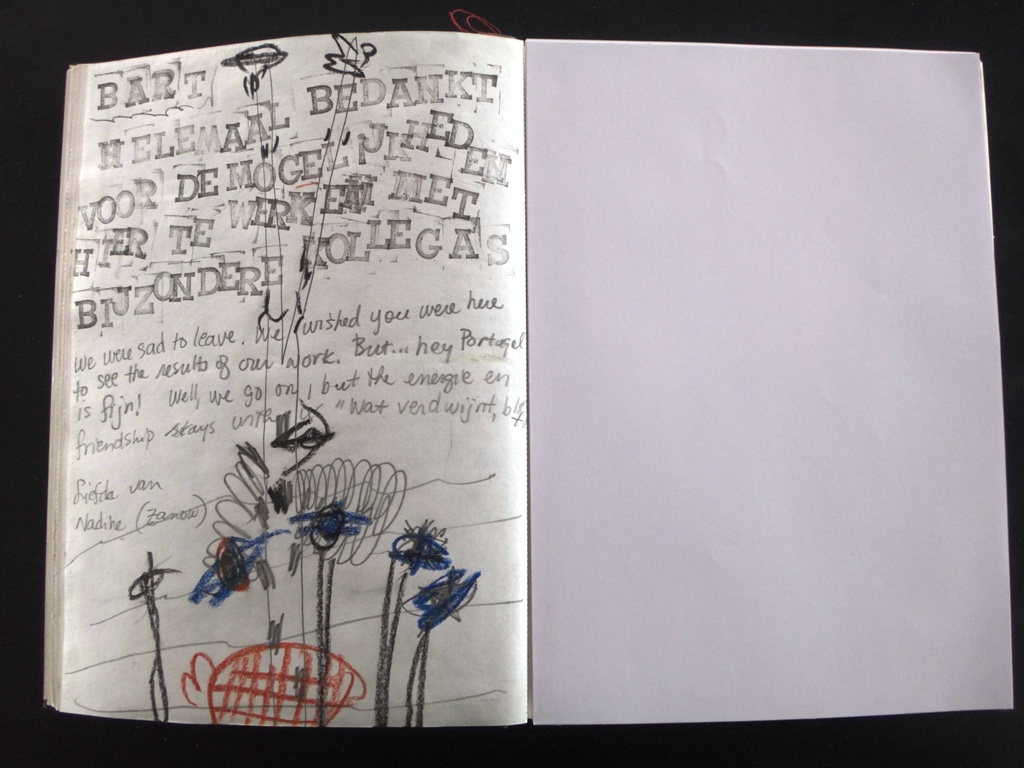 BART BEDANKT
HELEMAAL
VOOR DE MOGELIJKHEDEN
HIER TE WERKEN MET
BIJZONDERE KOLLEGAS
We were sad to leave. We wished you were here
to see the results of our work. But... hey Portugal
is fijn! Well, we go on, but the energie en
friendship stays with "Wat verdwijnt, blijft
Liefde van
Nadine (Zanow)